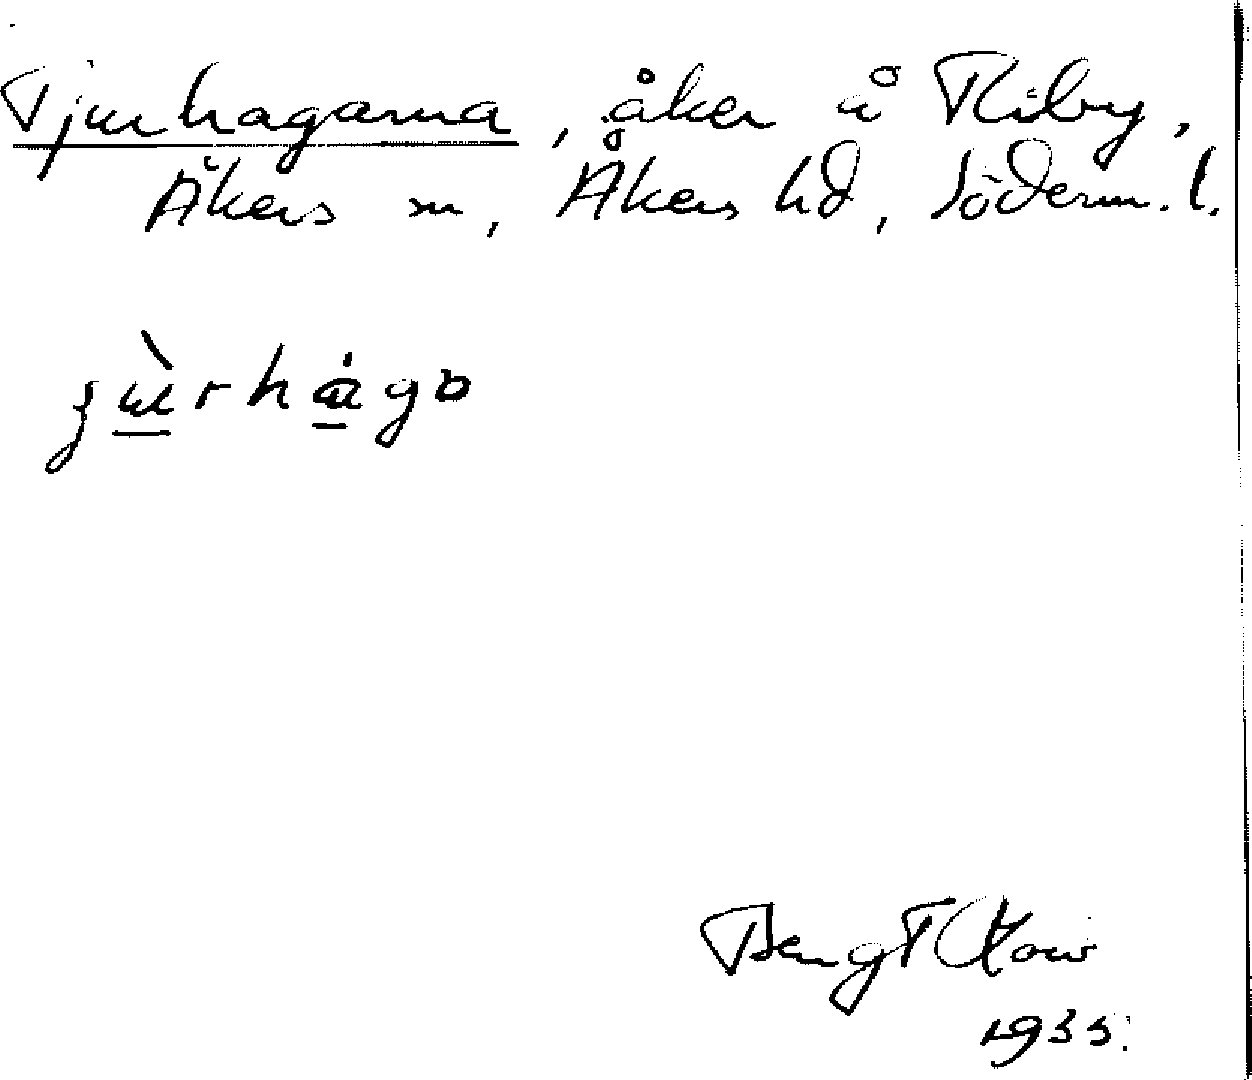 Tjurhagarna, åker å Riby,
Åkers sn, Åkers hd, Söderm. l.
Bengt
1935.